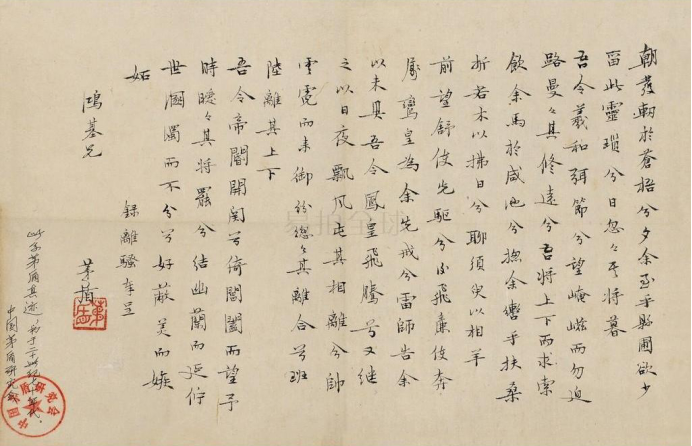 朝發軔於蒼梧兮夕余至乎縣圃欲少
留此靈瑣兮日忽々乎將暮
吾令羲和弭節兮望崦嵫而勿迫
路曼々其修遠兮吾將上下而求索
飲余馬於咸池兮揔余轡乎扶桑
折若木以拂日兮聊須臾以相羊
前望舒使先驅兮後飛廉使奔
屬鸞皇為余先戒兮雷師告余
以未具吾令鳳皇飛騰兮又繼
之以日夜飄風屯其相離兮帥
雲霓而來御紛總々其離合兮班
陸離其上下
吾令帝閽開関兮倚閶闔而望予
時曖々其將罷兮結幽蘭而延佇
世溷濁而不分兮好蔽美而嫉
妬
鴻基兄
録離騷奉呈
茅盾
此系茅盾真迹，書于二十世紀
中國茅盾研究會